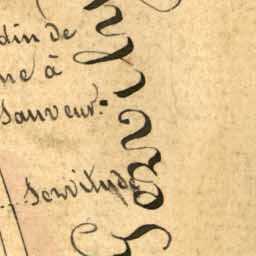 din de
ne à
Sauveur.
Servitude